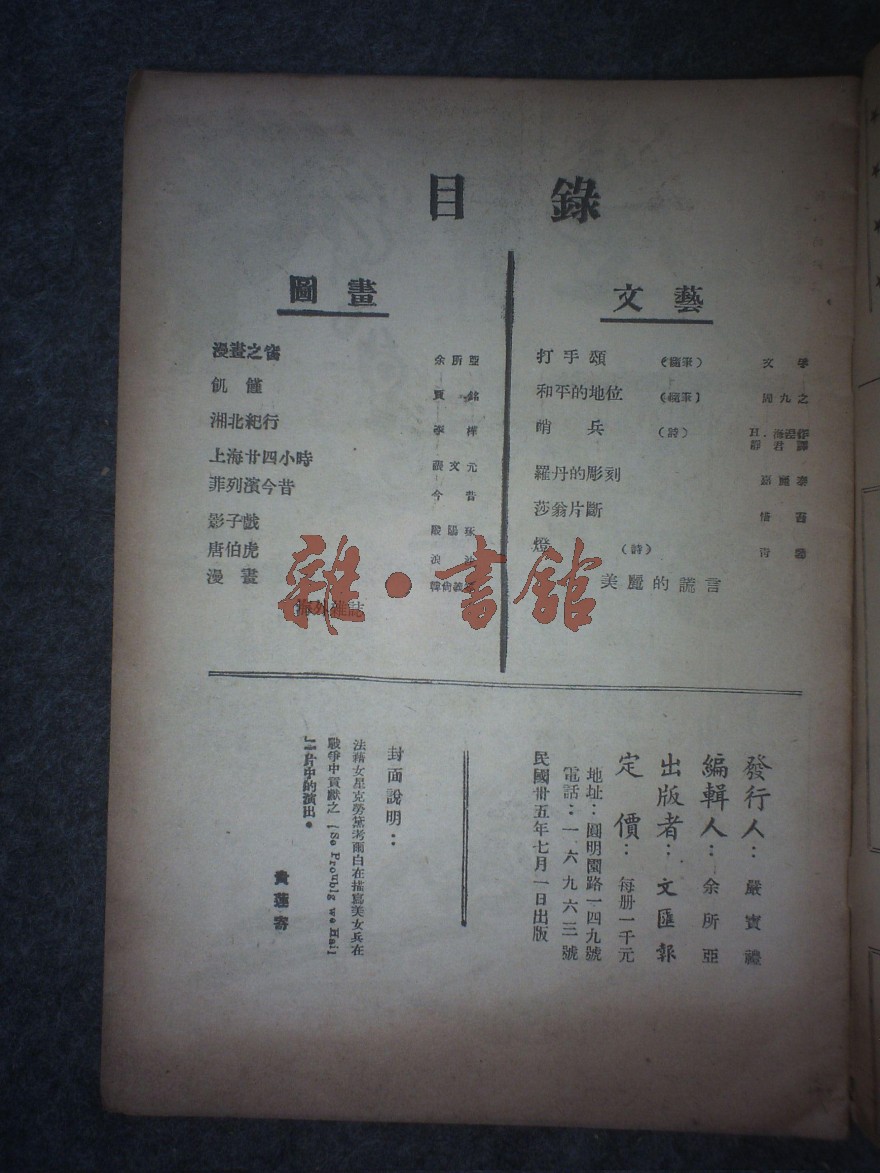 目錄
文藝
打手頌 (隨筆)
和平的地位 (隨筆) 周九之
哨兵 (詩)
靜君譯
羅丹的彫刻
莎翁片斷
燈 (詩)
美麗的謊言
圖畫
漫畫之窗 余所亞
飢饉
湘北紀行 李樺
上海廿四小時 張文元
菲列濱今昔 今昔
影子戲
唐伯虎
漫畫
海外雜誌
雜·書館
發行人：嚴寶禮
編輯人：余所亞
出版者：文匯報
定價：每册一千元
地址：圓明園路一四九號
電話：一六九六三號
民國卅五年七月一日出版
封面說明：
法藉女星克勞黛考爾白在描寫美女兵在
戰爭中貢獻之「So Proublg we Hail
」一片中的演出。
黃蓮寄